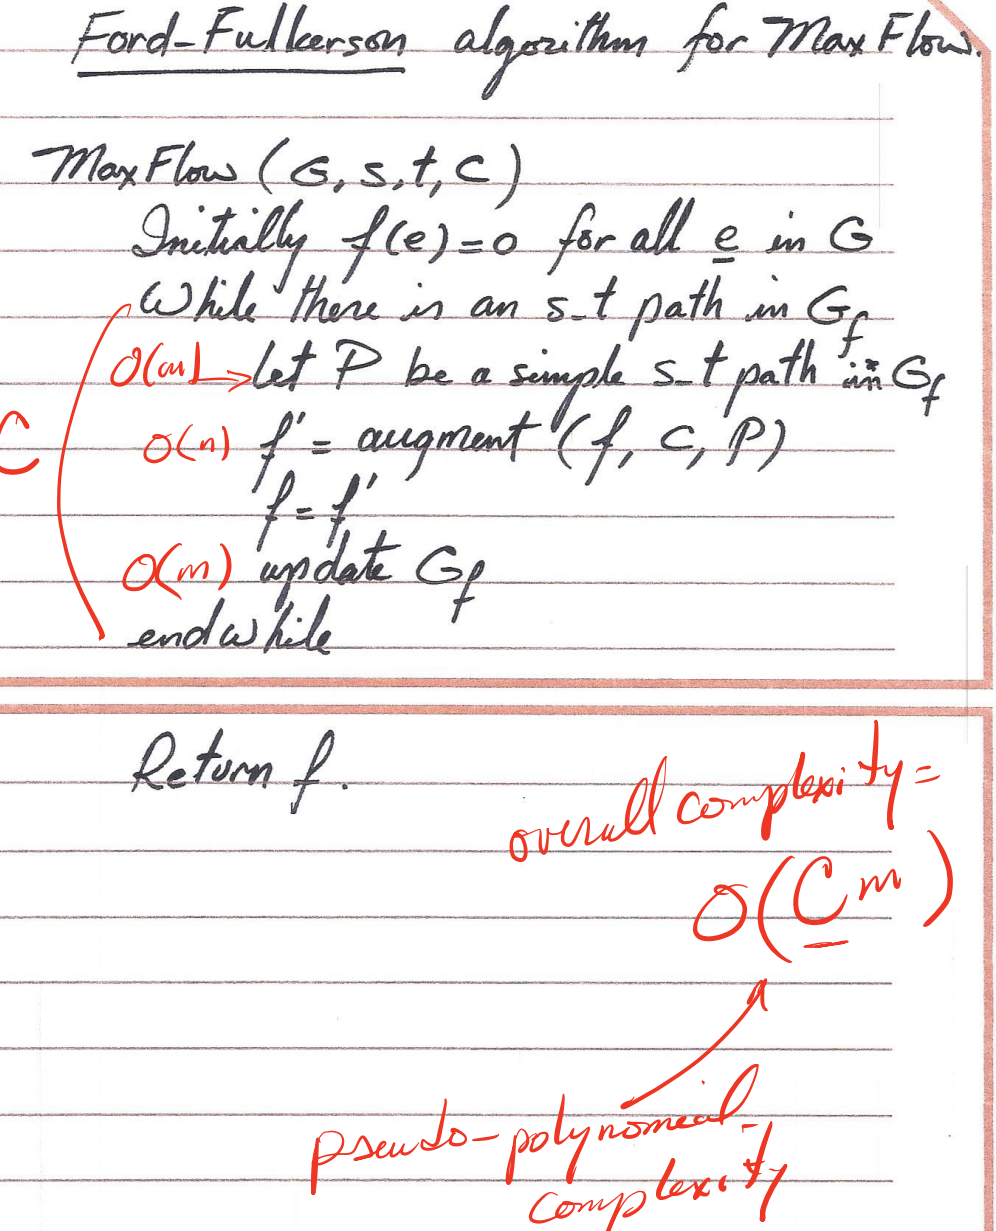 Ford-Fulkerson algorithm for Max Flow.
Max Flow (G, s, t, C)
Initially f(e)=0 for all e in G
While there is an s-t path in Gf
O(m) → let P be a simple s-t path in Gf
C
O(n) f' = augment (f, c, P)
f = f'
O(m) update Gf
endwhile
Return f.
overall complexity =
O(Cm)
pseudo-polynomial
complexity